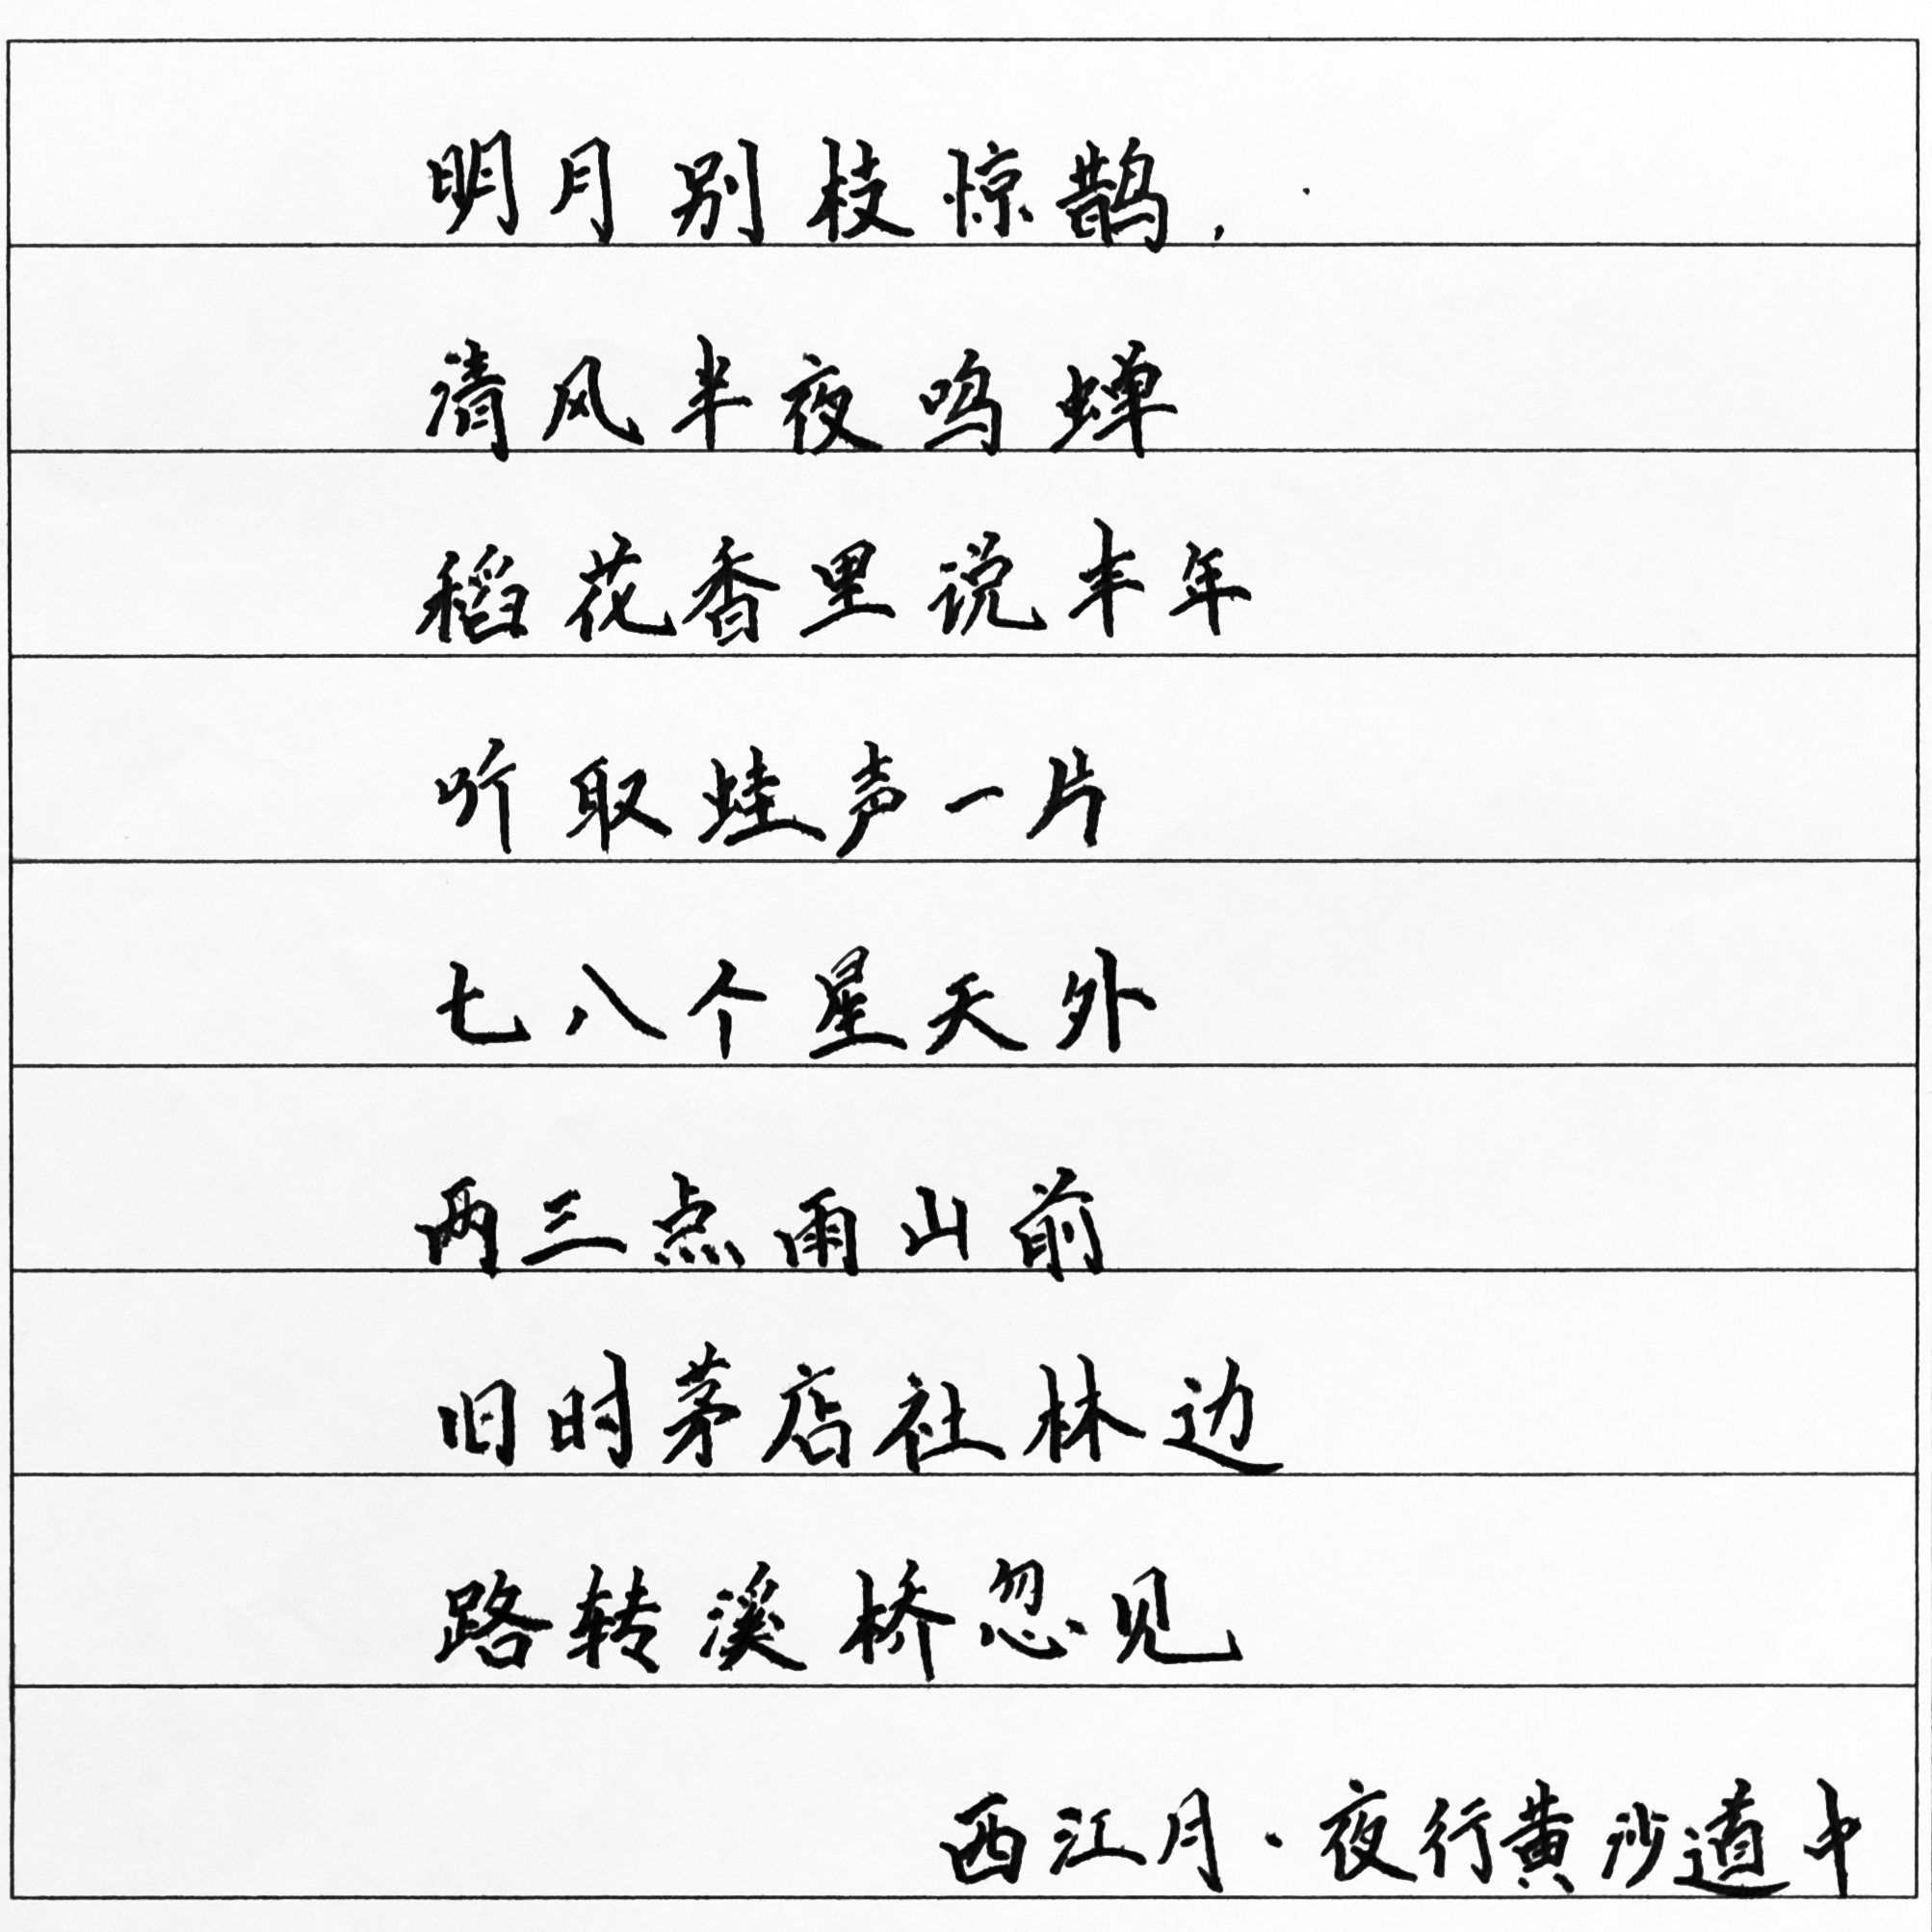 明月别枝惊鹊，
清风半夜鸣蝉
稻花香里说丰年
听取蛙声一片
七八个星天外
两三点雨山前
旧时茅店社林边
路转溪桥忽见
西江月·夜行黄沙道中